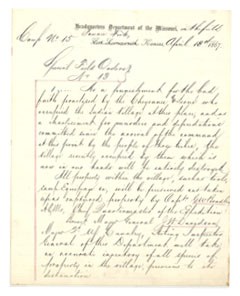 Headquarters Department of the Missouri, in the field,
Camp No 15 Pawnee Fork,
Fort Leavenworth, Kansas, April 18th 1867.
Special Field Orders
No 13
I As a punishment for the bad
faith practiced by the Cheyennes & Sioux who
occupied the Indian village at this place, and as
a chastisement for murders and depredations
committed since the arrival of the command
at this point by the people of these tribes, the
village recently occupied by them which is
now in our hands will be entirely destroyed.
All property within the village, such as tools,
camp Equipage &c, will be preserved and taken
up as captured property by Capt. G W
Chief Quartermaster of the Expedition.
Major General J W Davidson,
Major 2d U S Cavalry, Acting Inspector
General of the Department will take
an accurate inventory of all species of
property in the village, previous to its
destruction